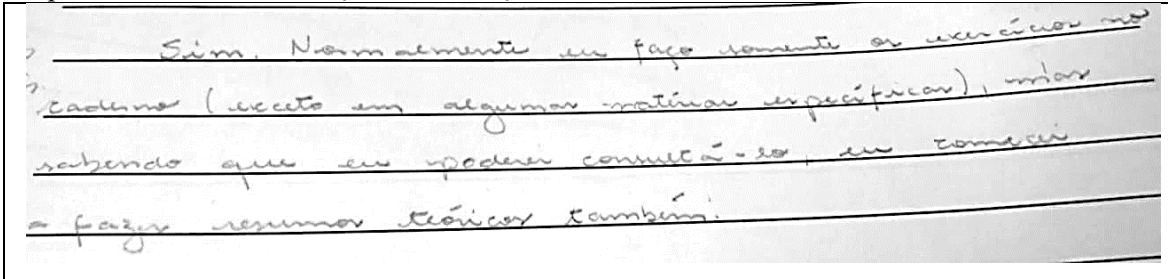 Sim. Normalmente eu faço somente os exercícios no
caderno (exceto em algumas matérias específicas), mas
sabendo que eu poderei consultá-lo, eu comecei
a fazer resumos teóricos também.